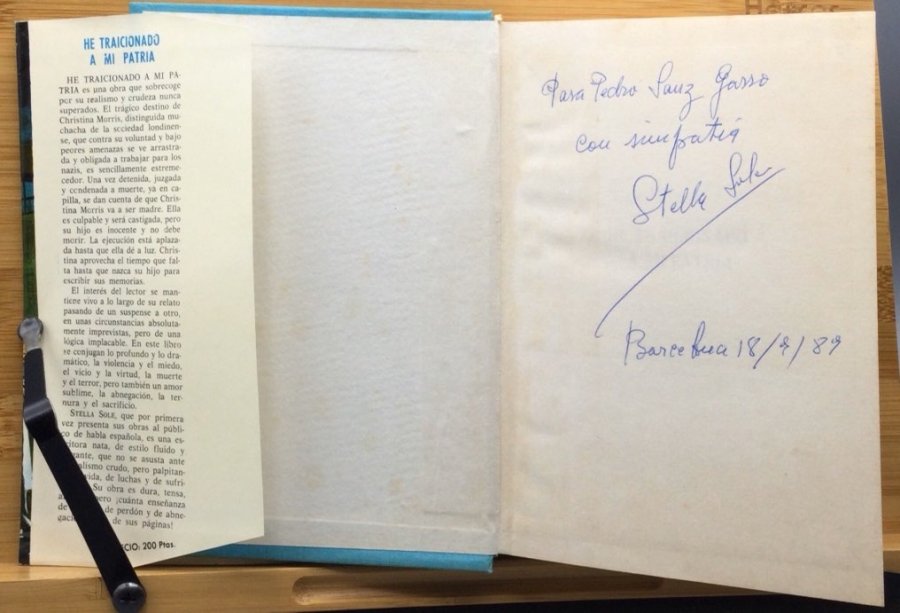 HE TRAICIONADO
A MI PATRIA
HE TRAICIONADO A MI PA-
TRIA es una obra que sobrecoge
por su realismo y crudeza nunca
superados. El trágico destino de
Christina Morris, distinguida mu-
chacha de la sociedad londinen-
se, que contra su voluntad y bajo
peores amenazas se ve arrastra-
da y obligada a trabajar para los
nazis, es sencillamente estreme-
cedor. Una vez detenida, juzgada
y condenada a muerte, ya en ca-
pilla, se dan cuenta de que Chris-
tina Morris va a ser madre. Ella
es culpable y será castigada, pero
su hijo es inocente y no debe
morir. La ejecución está aplaza-
da hasta que ella dé a luz. Chris-
tina aprovecha el tiempo que fal-
ta hasta que nazca su hijo para
escribir sus memorias.
El interés del lector se man-
tiene vivo a lo largo de su relato
pasando de un suspense a otro,
en unas circunstancias absoluta-
mente imprevistas, pero de una
lógica implacable. En este libro
se conjugan lo profundo y lo dra-
mático, la violencia y el miedo,
el vicio y la virtud, la muerte
y el terror, pero también un amor
sublime, la abnegación, la ter-
nura y el sacrificio.
STELLA SOLE, que por primera
vez presenta sus obras al públi-
co de habla española, es una es-
critora nata, de estilo fluido y
que no se asusta ante
crudo, pero palpitan-
de luchas y de sufri-
Su obra es dura, tensa,
pero ¡cuánta enseñanza
de de perdón y de abne-
de sus páginas!
200 Ptas.
Para Pedro Sanz Gasso
con simpatía
Stella Sole
Barcelona 18/9/89